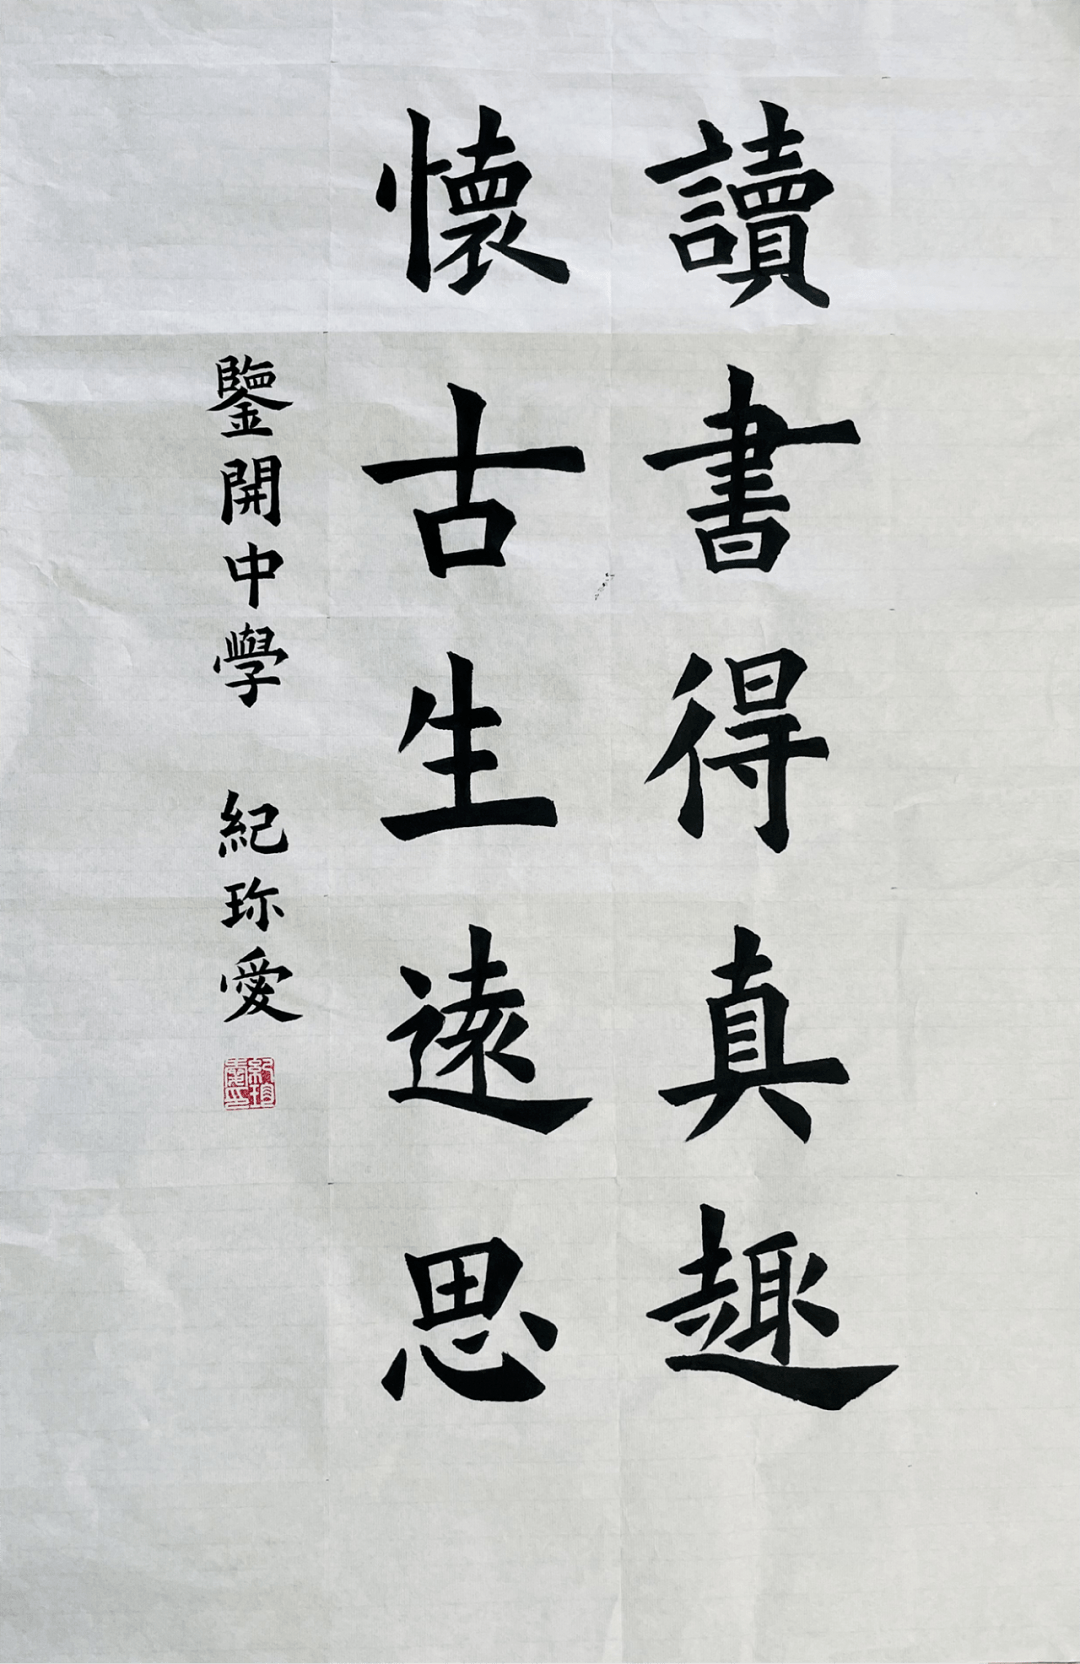 讀書得真趣
懷古生遠思
鑒開中學 紀珎愛